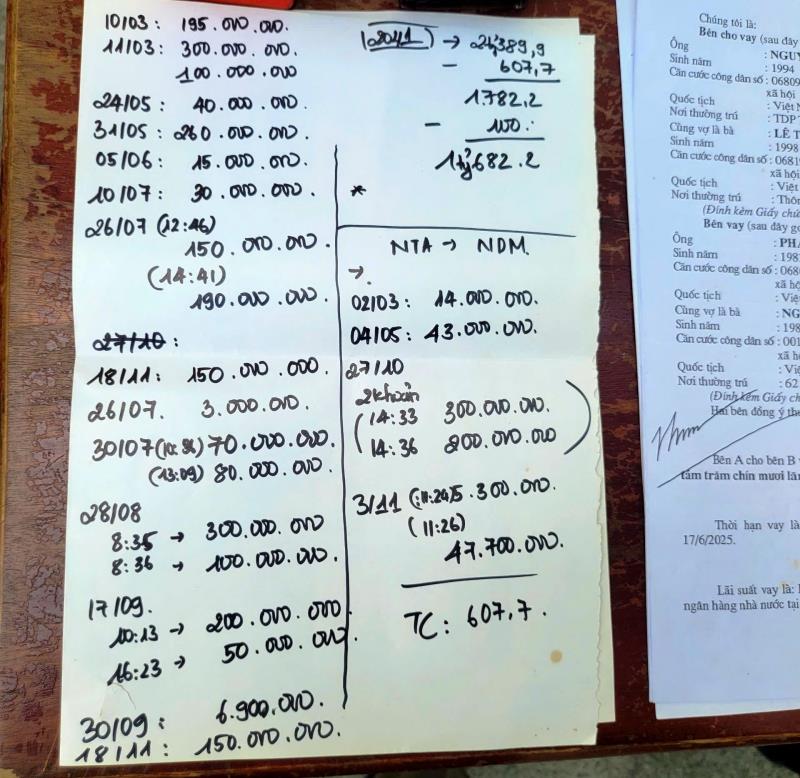 10/03: 195.000.000.
11/03: 300.000.000.
100.000.000
24/05: 40.000.000.
31/05: 260.000.000.
05/06: 15.000.000.
10/07: 30.000.000.
26/07 (12:46)
150.000.000.
(14:41)
190.000.000.
27/10:
18/11: 150.000.000.
26/07. 3.000.000.
30/07 (10:36) 70.000.000.
(13:09) 80.000.000.
28/08
8:35 → 300.000.000
8:36 → 100.000.000.
17/09.
10:13 → 200.000.000
16:23 → 50.000.000.
30/09: 6.900.000.
18/11: 150.000.000.
→ 2tỷ389,9
- 607,7
1.782,2
- 100.
1tỷ682.2
*
NTA → NDM.
→.
02/03: 14.000.000.
04/05: 43.000.000.
27/10
2 khoản
(14:33 300.000.000.
14:36 200.000.000)
3/11 300.000.000.
(11:26)
47.700.000.
TC: 607,7.
Chúng tôi là:
Bên cho vay (sau đây
Ông : NGUY
Sinh năm : 1994
Căn cước công dân số : 06809
xã hội
Quốc tịch : Việt N
Nơi thường trú : TDP
Cùng vợ là bà : LÊ T
Sinh năm : 1998
Căn cước công dân số : 0681
xã hội
Quốc tịch : Việt
Nơi thường trú : Thôn
(Đính kèm Giấy chứ
Bên vay (sau đây gọ
Ông : PHA
Sinh năm : 198
Căn cước công dân số : 068
xã h
Quốc tịch : Việ
Cùng vợ là bà : NG
Sinh năm : 198
Căn cước công dân số : 001
xã h
Quốc tịch : Việ
Nơi thường trú : 62
(Đính kèm Giấy ch
Hai bên đồng ý the
Bên A cho bên B
tám trăm chín mươi lăm
Thời hạn vay là
17/6/2025.
Lãi suất vay là:
ngân hàng nhà nước tại